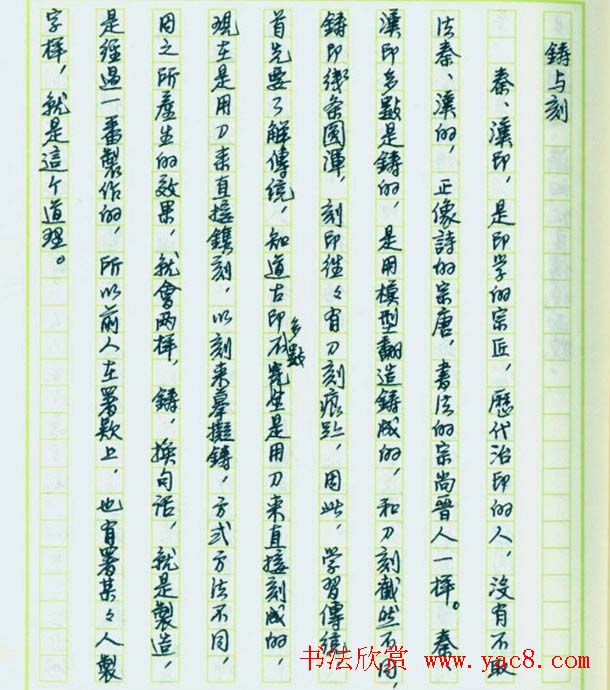 鑄与刻
秦、漢印，是印学的宗匠，歷代治印的人，沒有不取
法秦、漢的，正像詩的宗唐，書法的宗尚晉人一樣。秦、
漢印多數是鑄的，是用模型翻造鑄成的，和刀刻截然不同，
鑄印綫条圓渾，刻印往々有刀刻痕跡，因此，学習傳統
首先要了解傳統，知道古印多數不是用刀来直接刻成的，
現在是用刀来直接鐫刻，以刻来摹擬鑄，方式方法不同，
因之所產生的效果，就會两樣，鑄，换句话，就是製造，
是經過一番製作的，所以前人在署欵上，也有署某々人製
字樣，就是這个道理。
书法欣赏 www.yac8.com